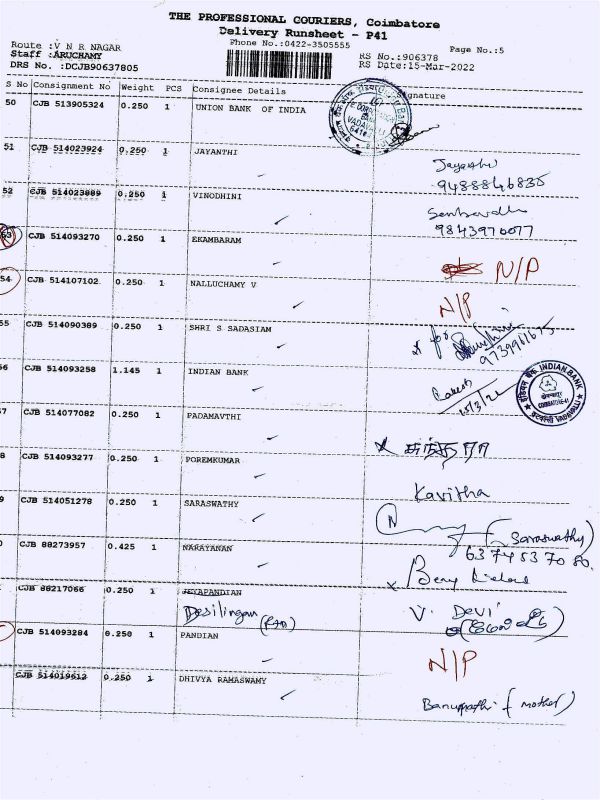 THE PROFESSIONAL COURIERS, Coimbatore
Delivery Runsheet - P41
Route :V N R NAGAR Phone No.:0422-3505555 Page No.:5
Staff :ARUCHAMY RS No.:906378
DRS No. :DCJB90637805 RS Date:15-Mar-2022
S No Consignment No Weight PCS Consignee Details Signature
50 CJB 513905324 0.250 1 UNION BANK OF INDIA
51 CJB 514023924 0.250 1 JAYANTHI Jayanthi
9488846835
52 CJB 514023889 0.250 1 VINODHINI
9843970077
53 CJB 514093270 0.250 1 EKAMBARAM N/P
54 CJB 514107102 0.250 1 NALLUCHAMY V N/P
55 CJB 514090389 0.250 1 SHRI S SADASIAM for
9739961675
56 CJB 514093258 1.145 1 INDIAN BANK Rakesh
15/3/22
INDIAN BANK
इंडियन बैंक
COIMBATORE-41
VADAVALLI
7 CJB 514077082 0.250 1 PADAMAVTHI
8 CJB 514093277 0.250 1 POREMKUMAR Kavitha
9 CJB 514051278 0.250 1 SARASWATHY (Saraswathy)
6374537080.
0 CJB 88273957 0.425 1 NARAYANAN
CJB 88217066 0.250 1 JEYAPANDIAN
Desilingan V. Devi
CJB 514093284 0.250 1 PANDIAN N/P
CJB 514019612 0.250 1 DHIVYA RAMASWAMY Banupathi (mother)